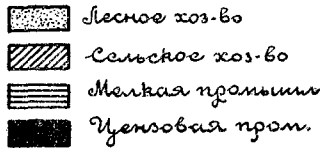 Лесное хоз-во
Сельское хоз-во
Мелкая промышл
Цензовая пром.